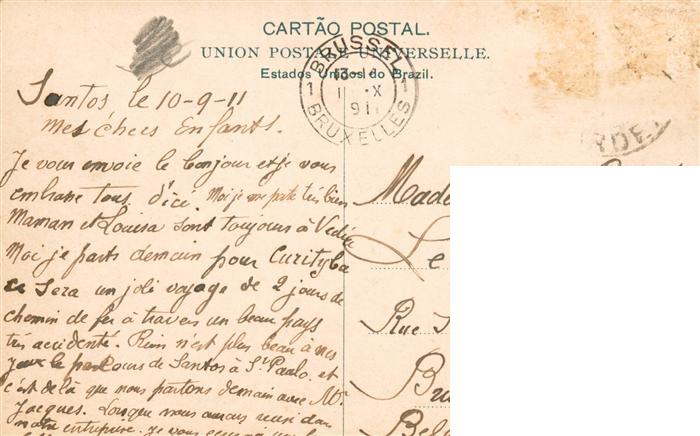 CARTÃO POSTAL.
UNION POSTALE UNIVERSELLE.
Estados Unidos do Brazil.
BRUSSEL
1 13-14 1
11 X
911
BRUXELLES
Santos le 10-9-11
Mes chers Enfants.
Je vous envoie le bonjour et je vous
embrasse tous d'ici. Moi je me porte très bien
Maman et Louisa sont toujours à
Moi je parts demain pour Curityba
ce sera un joli voyage de 2 jours de
chemin de fer à travers un beau pays
très accidenté. Rien n'est plus beau à mes
yeux le parcours de Santos à St Paulo. et
c'est de là que nous partons demain avec Mr.
Jacques. Lorsque nous aurons reussi dans
notre entreprise. Je vous
Made
Le
Rue
Bru
Bel